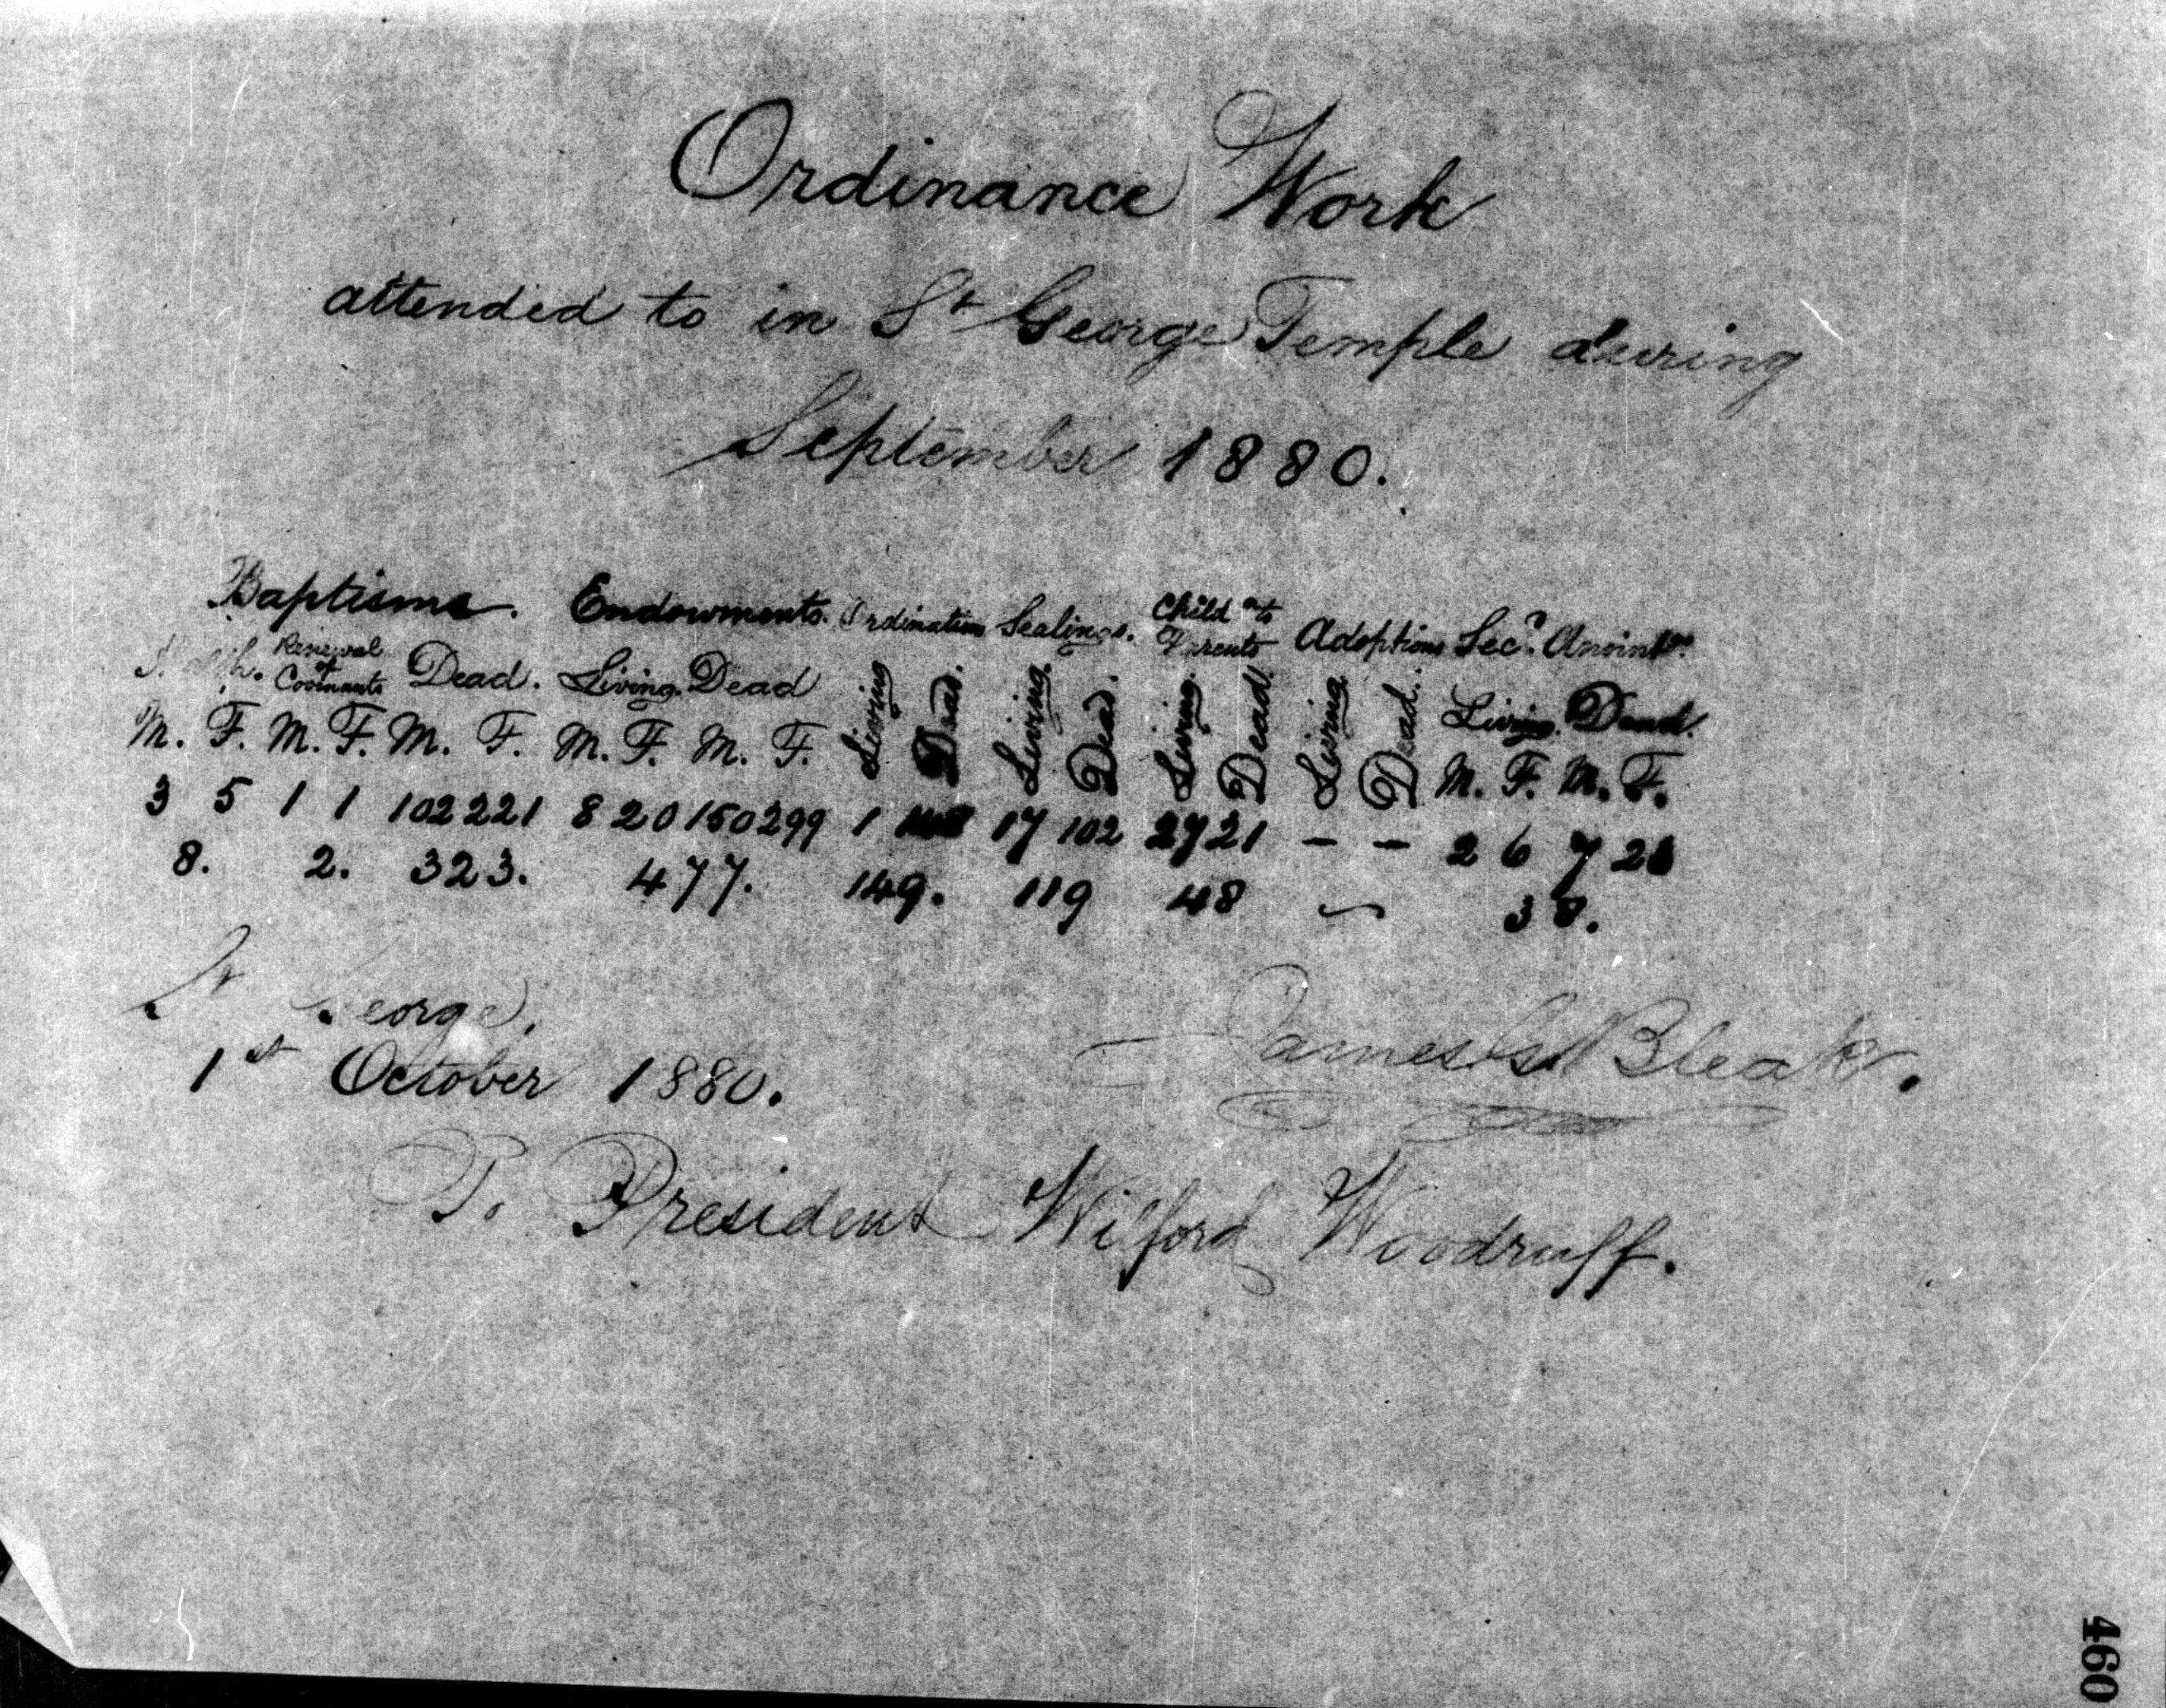 Ordinance Work
attended to in St George Temple during
September 1880.
Baptisms. Endowments. Ordinations Sealings. Child n to Parents Adoptions Sec d. Anoint gs.
Renewal of Covenants Dead. Living. Dead Living Dead. Living. Dead. Living. Dead. Living. Dead. Living. Dead.
M. F. M. F. M. F. M. F. M. F. M. F. M. F.
3 5 1 1 102 221 8 20 150 299 1 148 17 102 27 21 – – 2 6 7 23
8. 2. 323. 477. 149. 119 48 – 38.
St George,
1st October 1880.
James G. Bleak.
To President Wilford Woodruff.
460